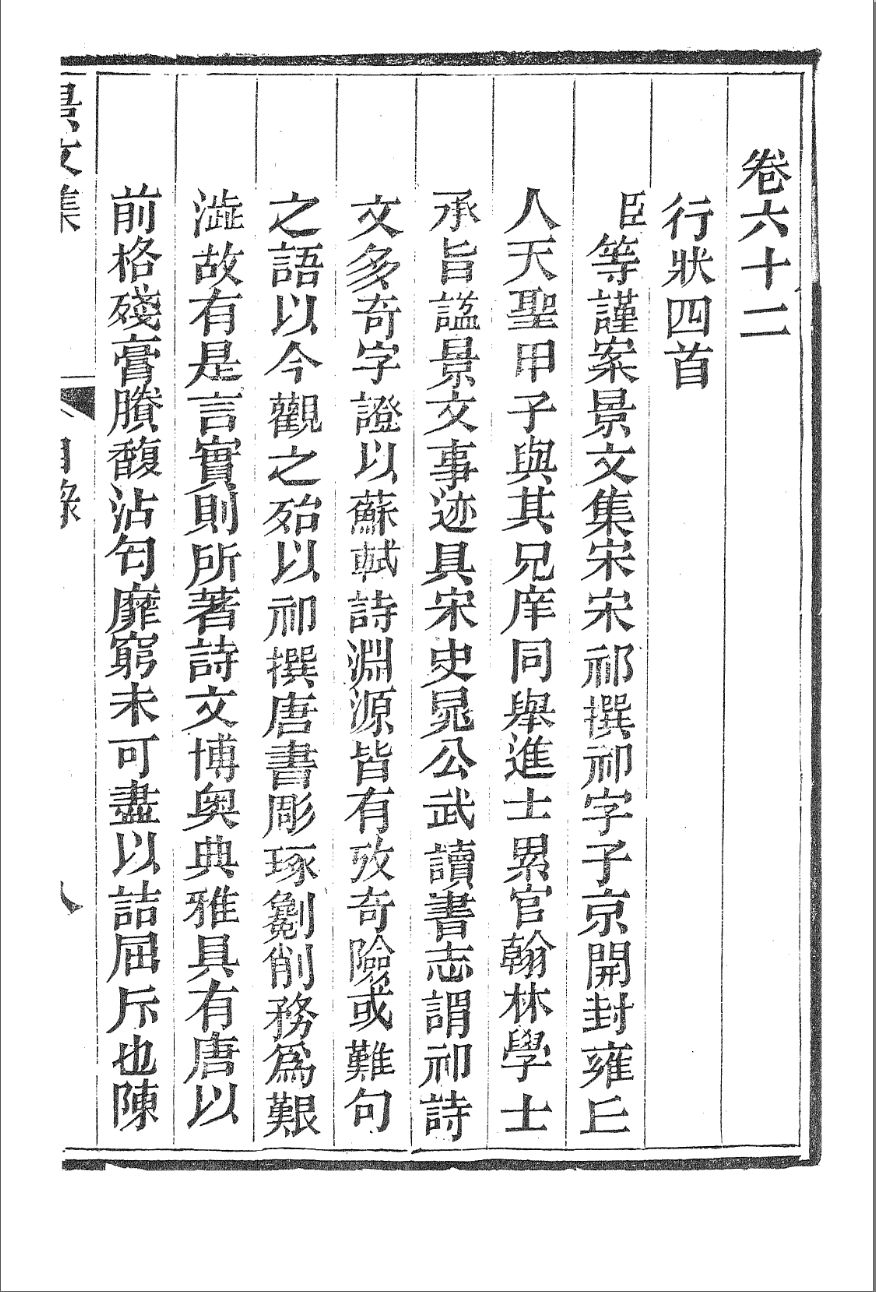 卷六十二
行狀四首
臣等謹案景文集宋宋祁撰祁字子京開封雍丘
人天聖甲子與其兄庠同舉進士累官翰林學士
承旨諡景文事迹具宋史晁公武讀書志謂祁詩
文多奇字證以蘇軾詩淵源皆有攷奇險或難句
之語以今觀之殆以祁撰唐書彫琢劖削務爲艱
澁故有是言實則所著詩文博奧典雅具有唐以
前格殘膏賸馥沾匄靡窮未可盡以詰屈斥也陳
景文集
目錄
八